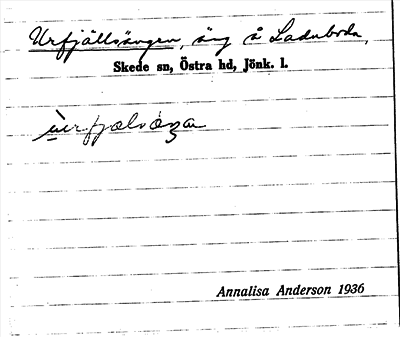 Urfjällsängen, äng å Laduboda,
Skede sn, Östra hd, Jönk. l.
Annalisa Anderson 1936